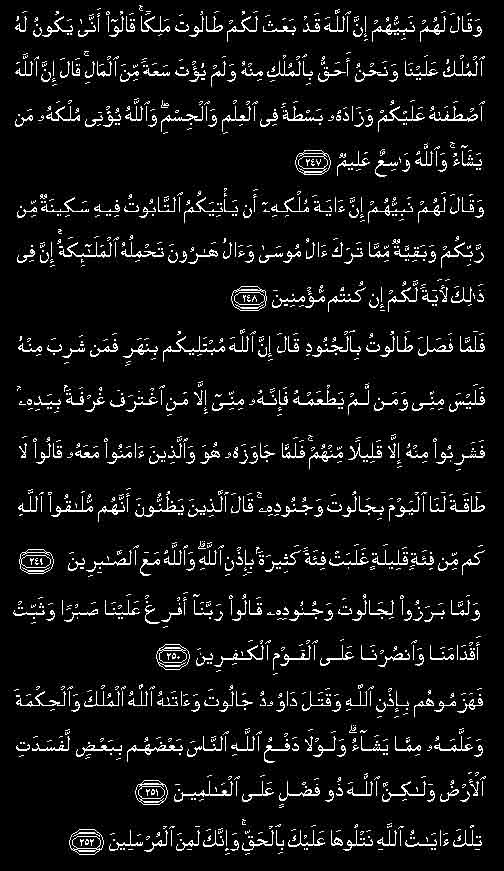 وَقَالَ لَهُمْ نَبِيُّهُمْ إِنَّ ٱللَّهَ قَدْ بَعَثَ لَكُمْ طَالُوتَ مَلِكًاۚ قَالُوٓاْ أَنَّىٰ يَكُونُ لَهُ
ٱلْمُلْكُ عَلَيْنَا وَنَحْنُ أَحَقُّ بِٱلْمُلْكِ مِنْهُ وَلَمْ يُؤْتَ سَعَةً مِّنَ ٱلْمَالِۚ قَالَ إِنَّ ٱللَّهَ
ٱصْطَفَىٰهُ عَلَيْكُمْ وَزَادَهُۥ بَسْطَةً فِى ٱلْعِلْمِ وَٱلْجِسْمِۖ وَٱللَّهُ يُؤْتِى مُلْكَهُۥ مَن
يَشَآءُۚ وَٱللَّهُ وَٰسِعٌ عَلِيمٌ ٢٤٧
وَقَالَ لَهُمْ نَبِيُّهُمْ إِنَّ ءَايَةَ مُلْكِهِۦٓ أَن يَأْتِيَكُمُ ٱلتَّابُوتُ فِيهِ سَكِينَةٌ مِّن
رَّبِّكُمْ وَبَقِيَّةٌ مِّمَّا تَرَكَ ءَالُ مُوسَىٰ وَءَالُ هَٰرُونَ تَحْمِلُهُ ٱلْمَلَٰٓئِكَةُۚ إِنَّ فِى
ذَٰلِكَ لَءَايَةً لَّكُمْ إِن كُنتُم مُّؤْمِنِينَ ٢٤٨
فَلَمَّا فَصَلَ طَالُوتُ بِٱلْجُنُودِ قَالَ إِنَّ ٱللَّهَ مُبْتَلِيكُم بِنَهَرٍ فَمَن شَرِبَ مِنْهُ
فَلَيْسَ مِنِّى وَمَن لَّمْ يَطْعَمْهُ فَإِنَّهُۥ مِنِّىٓ إِلَّا مَنِ ٱغْتَرَفَ غُرْفَةًۢ بِيَدِهِۦۚ
فَشَرِبُواْ مِنْهُ إِلَّا قَلِيلًا مِّنْهُمْۚ فَلَمَّا جَاوَزَهُۥ هُوَ وَٱلَّذِينَ ءَامَنُواْ مَعَهُۥ قَالُواْ لَا
طَاقَةَ لَنَا ٱلْيَوْمَ بِجَالُوتَ وَجُنُودِهِۦۚ قَالَ ٱلَّذِينَ يَظُنُّونَ أَنَّهُم مُّلَٰقُواْ ٱللَّهِ
كَم مِّن فِئَةٍ قَلِيلَةٍ غَلَبَتْ فِئَةً كَثِيرَةًۢ بِإِذْنِ ٱللَّهِۗ وَٱللَّهُ مَعَ ٱلصَّٰبِرِينَ ٢٤٩
وَلَمَّا بَرَزُواْ لِجَالُوتَ وَجُنُودِهِۦ قَالُواْ رَبَّنَآ أَفْرِغْ عَلَيْنَا صَبْرًا وَثَبِّتْ
أَقْدَامَنَا وَٱنصُرْنَا عَلَى ٱلْقَوْمِ ٱلْكَٰفِرِينَ ٢٥٠
فَهَزَمُوهُم بِإِذْنِ ٱللَّهِ وَقَتَلَ دَاوُۥدُ جَالُوتَ وَءَاتَىٰهُ ٱللَّهُ ٱلْمُلْكَ وَٱلْحِكْمَةَ
وَعَلَّمَهُۥ مِمَّا يَشَآءُۗ وَلَوْلَا دَفْعُ ٱللَّهِ ٱلنَّاسَ بَعْضَهُم بِبَعْضٍ لَّفَسَدَتِ
ٱلْأَرْضُ وَلَٰكِنَّ ٱللَّهَ ذُو فَضْلٍ عَلَى ٱلْعَٰلَمِينَ ٢٥١
تِلْكَ ءَايَٰتُ ٱللَّهِ نَتْلُوهَا عَلَيْكَ بِٱلْحَقِّۚ وَإِنَّكَ لَمِنَ ٱلْمُرْسَلِينَ ٢٥٢